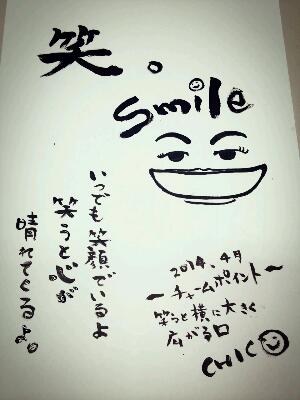 笑。
smile
いつでも笑顔でいるよ
笑うと心が
晴れてくるよ。
2014.4月
ーチャームポイントー
笑うと横に大きく
広がる口
CHICO